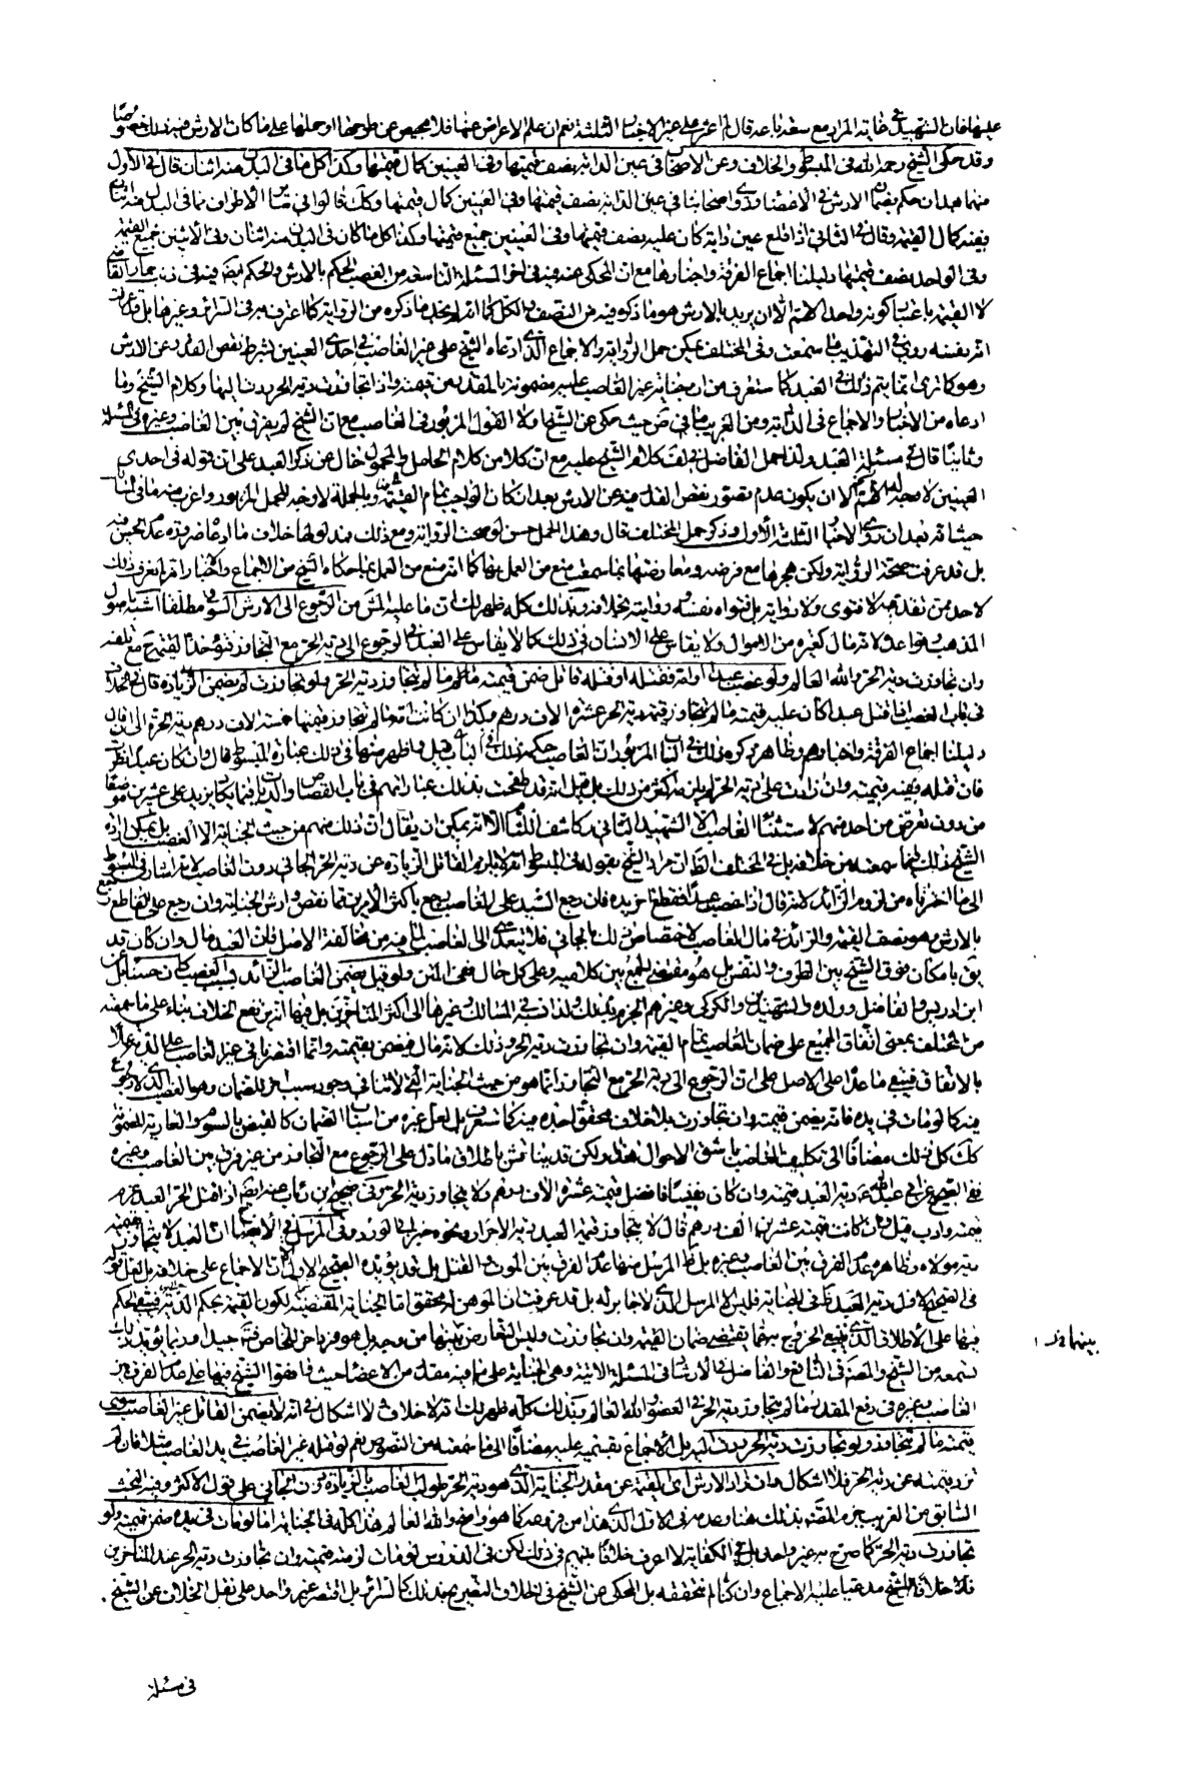 عليها فان الشهيد في غاية المراد مع سعة باعه قال لم اعثر على غير الاخبار الثلثة نعم ان علم الاعراض عنها فلا محيص عن طرحها او حملها على ما كان الارش فيه ذلك خصوصًا
وقد حكى الشيخ رحمه الله في المبسوط والخلاف وعن الاصحاب في عين الدابة نصف قيمتها وفى العينين كمال قيمتها وكذا كل ما في البدن منه اثنان قال في الأول
منهما بعد ان حكم بضمان الارش في الاعضاء وروى اصحابنا في عين الدابة نصف قيمتها وفى العينين كمال قيمتها وكك قالوا في سائر الاطراف مما في البدن منه اثنان
ففيه كمال القيمة وقال في الثاني اذا قلع عين دابة كان عليه نصف قيمتها وفى العينين جميع قيمتها وكذا كل ما كان في البدن منه اثنان وفى الاثنين جميع القيمة
وفى الواحد نصف قيمتها دليلنا اجماع الفرقة واخبارهم مع ان المحكى عنه فيه في اخر المسئلة التاسعة من الغصب الحكم بالارش والحكم ايضا فيه في ذنب حمار القاضى
لا القيمة باعتبار كونه واحدا اللهم الا ان يريد بالارش هو ما ذكره فيه من النصف والكل كما انه لم نجد ما ذكره من الرواية كما اعترف به في السرائر وغيرها بل قد عرفت
انه نفسه روى في التهذيب ما سمعت وفى المختلف يمكن حمل الرواية والاجماع الذى ادعاه الشيخ على غير الغاصب في احدى العينين بشرط نقص المقدر عن الارش
وهو كما ترى انما يتم ذلك في العبد كما ستعرف من ان جناية غير الغاصب عليه مضمونة بالمقدر من قيمته واذا تجاوزت دية الحر ردت اليها وكلام الشيخ وما
ادعاه من الاخبار والاجماع في الدابة ومن الغريب ما في ضه حيث حكى عن الشيخ اولا القول المزبور في الغاصب مع ان الشيخ لم يفرق بين الغاصب وغيره في المسئلة
وثانيًا قال في مسئلة العبد ولذا حمل الفاضل في لف كلام الشيخ عليه مع ان كلا من كلام الحامل والمحمول خال عن ذكر العبد على ان قوله في احدى
العينين لا وجه له اللهم الا ان يكون عدم تصور نقص المقدر فيه عن الارش بعد ان كان الواجب تمام القيمة وبالجملة لا وجه للحمل المزبور واغرب منه ما في
حيث انه بعد ان روى الاخبار الثلث الأول وذكر حمل المختلف قال وهذا الحمل حسن لو صحت الرواية ومع ذلك فمدلولها خلاف ما ادعاه
بل قد عرفت صحة الرواية ولكن هجرها مع فرضه ومعارضتها بما سمعت منع من العمل بها كما انه منع من العمل بما حكاه الشيخ من الاجماع والاخبار اذ لم نعرف ذلك
لاحد ممن تقدمه لا فتوى ولا رواية بل فتواه نفسه ورواية بخلافه وبذلك كله ظهر لك ان ما عليه المص من الرجوع الى الارش السوقى مطلقا اشبه باصول
المذهب وقواعده لانه مال كغيره من الاموال ولا يقاس على الانسان في ذلك كما لا يقاس على العبد في الرجوع الى دية الحر مع التجاوز فتؤخذ القيمة مع تلفه
وان تجاوزت دية الحر والله العالم ولو غصب عبدا او امة فقتله او قتله قاتل ضمن قيمته ما لم تتجاوز دية الحر ولو تجاوزت لم يضمن الزيادة قال في
في باب الغصب اذا قتل عبدا كان عليه قيمته ما لم تتجاوز قيمته دية الحر عشرة الاف درهم وكذا ان كانت امة ما لم تتجاوز قيمتها خمسة الاف درهم دية الحرة الى ان قال
دليلنا اجماع الفرقة واخبارهم وظاهر ذكره ذلك في الباب المزبور ان الغاصب حكمه ذلك في الباب قيل واظهر منها في ذلك عبارة المبسوط قال وان كان عبدا نظرت
فان قتله ففيه قيمته وان زادت على دية الحر لم يلزمه اكثر من ذلك بل قيل انه قد طفحت بذلك عباراتهم في باب القصاص والديات فيما يقرب من عشرين موضعًا
من دون تعرض من احد منهم لاستثناء الغاصب الا الشهيد الثاني وكاشف اللثام الا انه يمكن ان يقال ان ذلك منهم من حيث الجناية لا الغصب بل يمكن ارادة
الشيخ ذلك فيما سمعته من خلافه بل في المختلف الظاهر ان مراد الشيخ بقوله في المبسوط انه لا يلزم القاتل الزيادة عن دية الحر الجاني دون الغاصب لانه اشار في المبسوط
الى ما اخترناه من لزوم الزائد لانه قال اذا غصب عبدا فقطع اخر يده فان رجع السيد على الغاصب رجع باكثر الأمرين مما نقص وارش الجناية وان رجع على القاطع رجع
بالارش وهو نصف القيمة والزائد في مال الغاصب لاختصاص ذلك بالجاني فلا يتعدى الى الغاصب لما فيه من مخالفة الاصل فان العبد مال وان كان قد
يق بامكان فرق الشيخ بين الطرف والنفس بل هو مقتضى الجمع بين كلاميه وعلى كل حال ففى المتن ولو قيل يضمن الغاصب الزائد بسبب الغصب كان حسنا بل عن
ابن ادريس والفاضل وولده والشهيدين والكركى وغيرهم الجزم بذلك ولذا نسبه في المسالك وغيرها الى اكثر المتاخرين بل فيها انه يرتفع الخلاف بناء على ما سمعته
من المختلف بمعنى اتفاق الجميع على ضمان الغاصب تمام القيمة وان تجاوزت دية الحر وذلك لانه مال فيضمن بقيمته وانما اقتصرنا في غير الغاصب على الدية عملا
بالاتفاق فيبقى ما عداه على الاصل على ان الرجوع الى دية الحر مع التجاوز انما هو من حيث الجناية التى لا تنافى وجود سبب اخر للضمان وهو الغصب الذى لا رجوع
فيه كما لو مات في يده فانه يضمن قيمته وان تجاوزت بلا خلاف محقق اجده فيه كما ستعرف بل لعل غيره من اسباب الضمان كالقبض بالسوم والعارية المضمونة
كك كل ذلك مضافًا الى تكليف الغاصب باشق الاحوال هذا ولكن قد يناقش باطلاق ما دل على الرجوع مع التجاوز من غير فرق بين الغاصب وغيره
ففى الصحيح عن ابى عبد الله ع دية العبد قيمته وان كان نفيسًا فافضل قيمته عشرة الاف درهم ولا يتجاوز دية الحر وفى صحيح ابن رئاب عنه ايضا اذا قتل الحر العبد غرم
قيمته وادب قيل فان كانت قيمته عشرين الف درهم قال لا يتجاوز قيمة العبد دية الاحرار ونحوه خبر ابى الورد وفى المرسل في الايضاح ان العبد لا يتجاوز بقيمته
دية مولاه وظاهره عدم الفرق بين الغاصب وغيره بل ظاهر المرسل منها عدم الفرق بين الموت والقتل بل قد يؤيده الصحيح الاول الا ان الاجماع على خلافه بل لعل قوله
في الصحيح الاول دية العبد في الجناية فليس الا المرسل الذى لا جابر له بل قد عرفت ان الموهن له محقق اما الجناية المقتضية لكون القيمة بحكم الدية فيتبع الحكم
فيها على الاطلاق الذى ينبغى الخروج به عما يقتضى ضمان القيمة وان تجاوزت وليس التعارض بينهما من وجه بل هو فرد اخر خاص فتامل جيدا وربما يؤيد ذلك ما
تسمعه من الشيخ والمص في النافع والفاضل في الارشاد في المسئلة الاتية وهى الجناية على ما فيه مقدر من الاعضاء حيث وافقوا الشيخ فيها على عدم الفرق بين
الغاصب وغيره في دفع المقدر ما لم يتجاوز دية الحر في العضو والله العالم وبذلك كله ظهر لك انه لا خلاف ولا اشكال في انه لا يضمن القاتل غير الغاصب سوى
قيمته ما لم تتجاوز ولو تجاوزت دية الحر ردت اليه بل الاجماع بقسميه عليه مضافًا الى ما سمعته من النصوص نعم لو قتله غير الغاصب في يد الغاصب مثلا فان لم
تزد قيمته عن دية الحر فلا اشكال وان زاد الارش اى القيمة عن مقدر الجناية الذى هو دية الحر طولب الغاصب بالزيادة دون الجاني على قول الاكثر وفيه البحث
السابق ومن الغريب جزم المصنف بذلك هنا وعدمه في الاول الذى هذا من فروعه كما هو واضح والله العالم هذا كله في الجناية اما لو مات في يده ضمن قيمته ولو
تجاوزت دية الحر كما صرح به غير واحد بل في الكفاية لا اعرف خلافا بينهم في ذلك لكن في الدروس لو مات لزمه قيمته وان تجاوزت دية الحر عند المتاخرين
خلافًا للشيخ مدعيا عليه الاجماع وان كنا لم نتحققه بل المحكى عن الشيخ في الخلاف التصريح بخلاف ذلك كالسرائر بل اقتصر غير واحد على نقل الخلاف عن الشيخ
في مسئلة